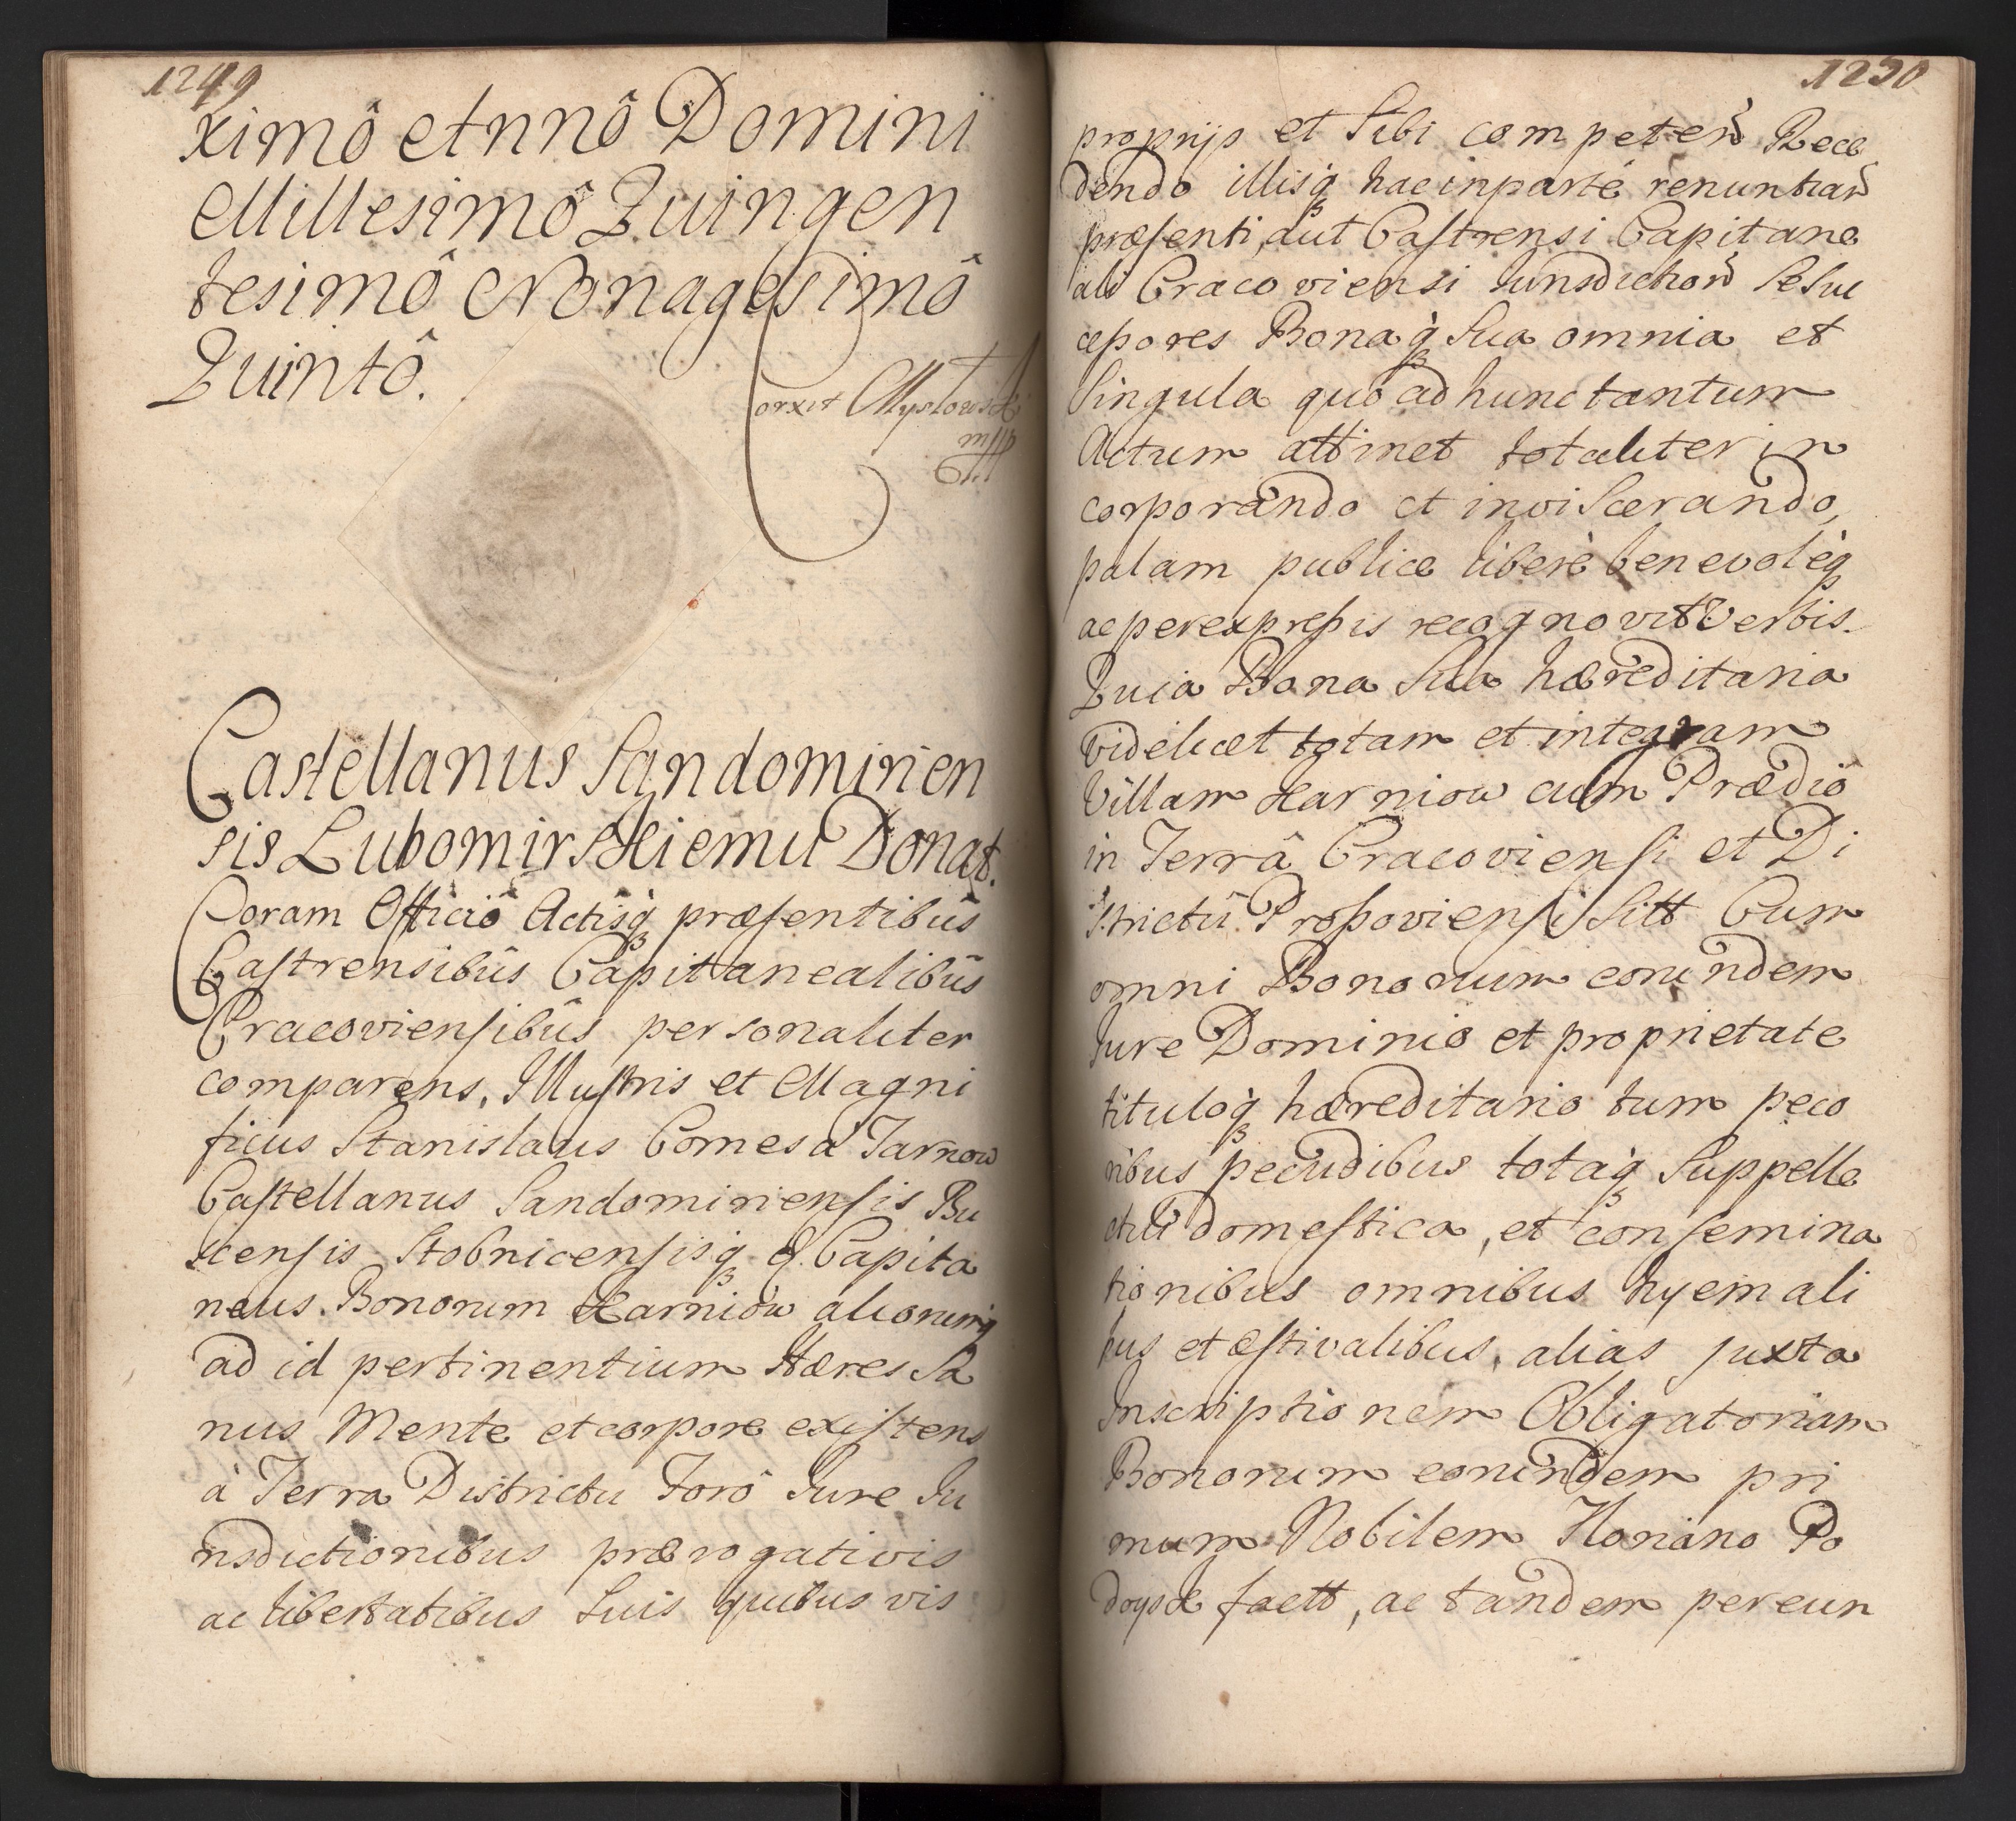 1249
ximô Annô Domini
Millesimô Quingen
tesimô Nonagesimô
Quintô.
Castellanus Sandomirien
sis Lubomirskiemu Donat.
Coram Officiô Actisq́ præsentibûs
Castrensibûs Capitanealibûs
Cracoviensibûs personaliter
comparens, Illustris et Magni
ficus Stanislaus Comes à Tarnow
Castellanus Sandomiriensis Bu
scensis Stobnicensisq́ & Capita
neus. Bonorum Karniow aliorumq́
ad id pertinentium Hæres Sa
nus Mente et corpore existens
à Terra Districtu Forô Iure Iu
risdictionibus prærogativis
ac libertatibus Suis quibus vis
1250
proprijs et Sibi competen̄ Rece
dendo illisq́ hac in parte renuntian̄
præsenti, aut Castrensi Capitane
ali Cracoviensi Iurisdiction̄ Se Suc
cessores Bonaq́ Sua omnia et
Singula quo ad hunc tantum
Actum attinet totaliter in
corporando et inviscerando,
palam publice liberè benevolèq́
ac per expressis recognovit Verbis.
Quia Bona Sua hæreditaria
videlicet totam et integram
Villam Karniow cum Prædiô
in Terrâ Cracoviensi et Di
strictû Proszoviensi Sitt Cum
omni Bonorum eorundem
Iure Dominio et proprietate
tituloq́ hæreditario tum peco
ribus pecudibus totaq́ Suppelle
ctili domestica, et consemina
tionibus omnibus hyemali
bus et æstivalibus, alias juxta
Inscriptionem Obligatoriam
Bonorum eorundem pri
mum Nobilem Floriano Po
doysk factt, ac tandem per eun